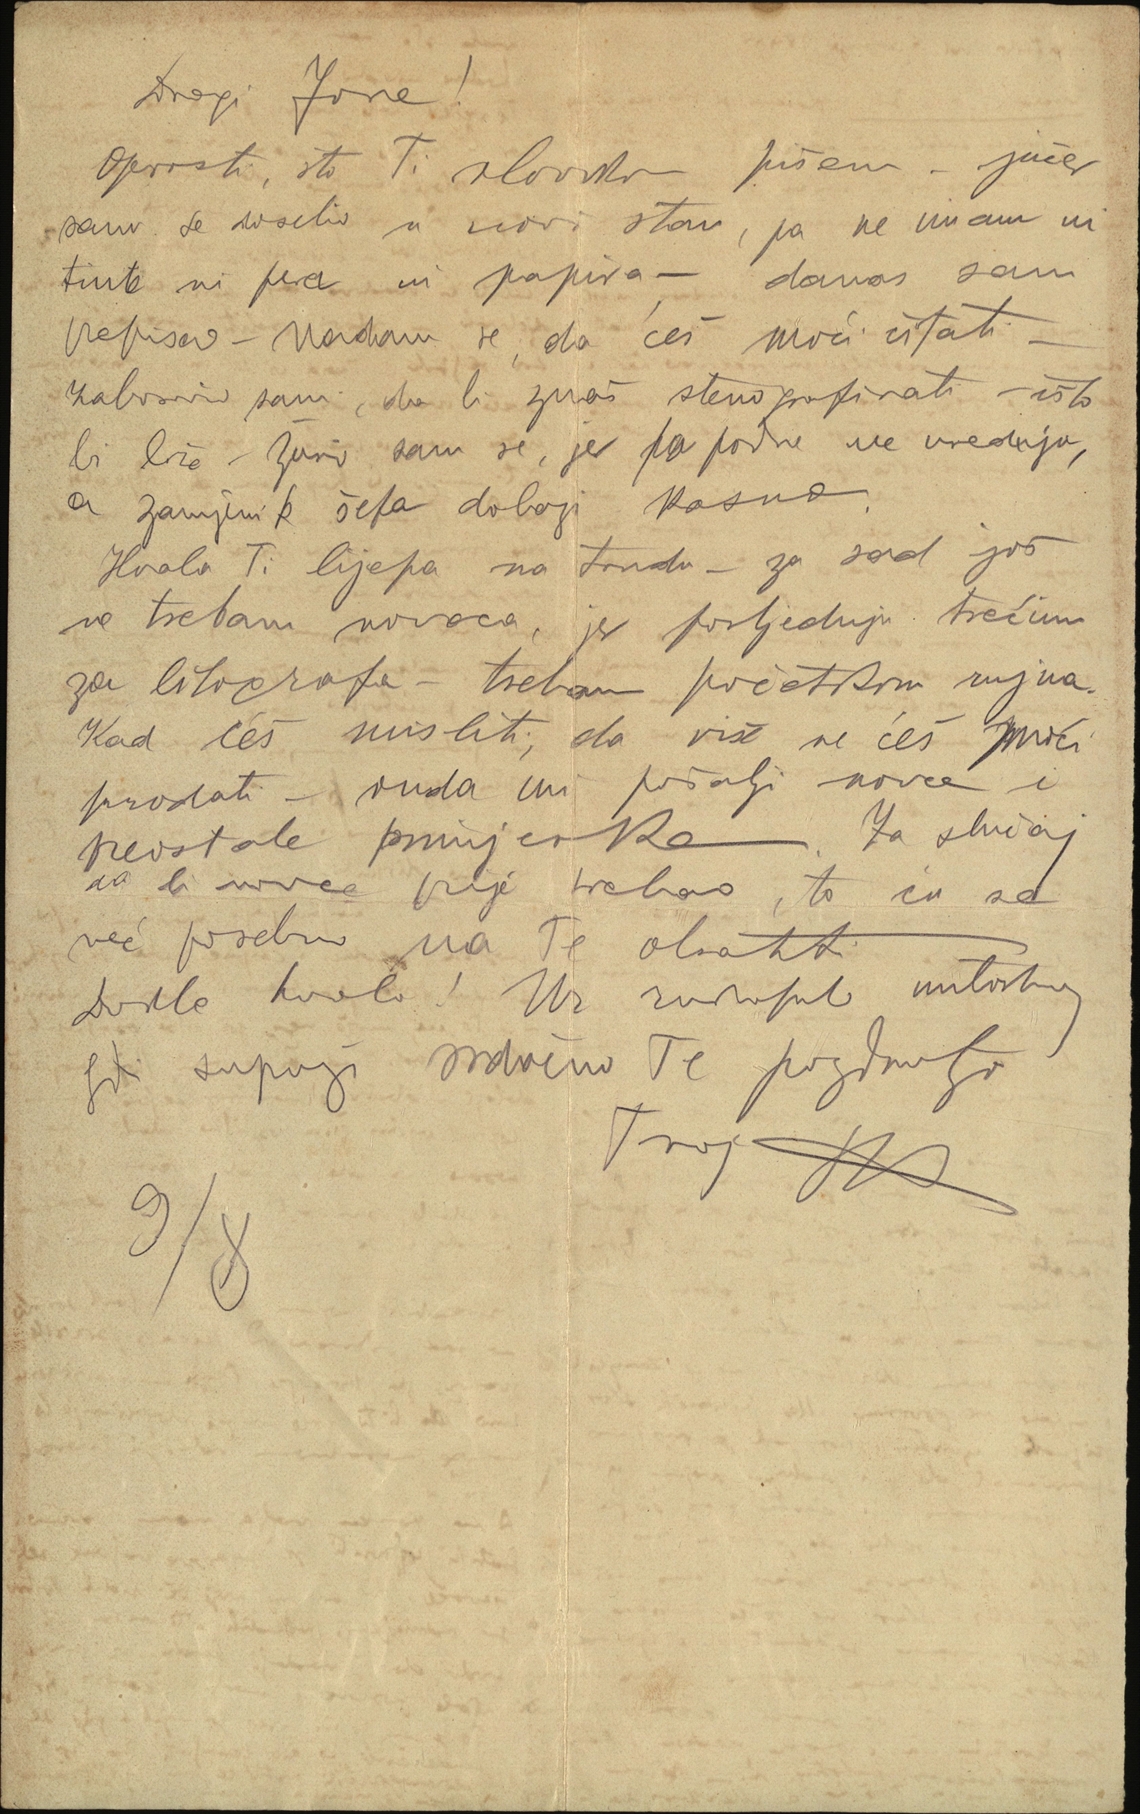 Dragi Jove!
Oprosti, što Ti olovkom pišem – jučer
sam se doselio u novi stan, pa ne imam ni
tinte ni pera ni papira – danas sam
prepisao – Nadam se, da ćeš moći čitati –
zaboravio sam, da li znaš stenografirati – išlo
bi brže – Žurio sam se, jer po podne ne ureduju,
a zamjenik šefa dolazi kasno.
Hvala Ti lijepa na trudu – za sad još
ne trebam novaca, jer
za litografa – trebam početkom rujna.
Kad ćeš misliti, da više ne ćeš moći
prodati – onda mi pošalji novce i
preostale primjerke. Za slučaj
da bi novce prije trebao, to ću se
već posebno na Te obratiti
Dotle hvala! Uz rukoljub milostivoj
gđi supruzi srdačno Te pozdravlja
Tvoj
9/8